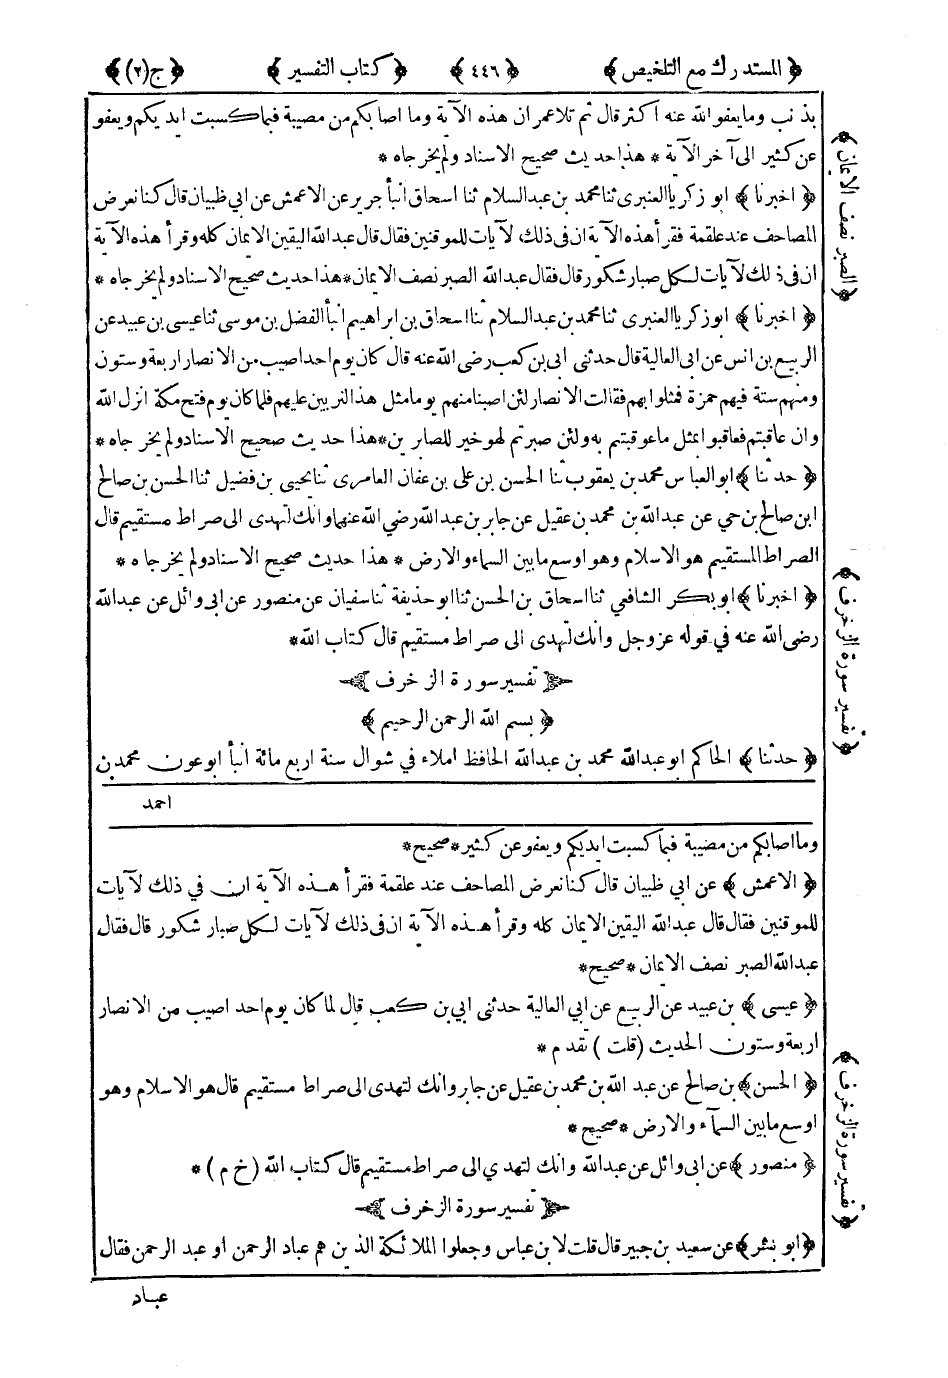 ﴿ المستدرك مع التلخيص ﴾ ﴿ ٤٤٦ ﴾ ﴿ كتاب التفسير ﴾ ﴿ ج (٢) ﴾
بذنب وما يعفو الله عنه اكثر قال ثم تلا عمران هذه الآية وما اصابكم من مصيبة فبما كسبت ايديكم ويعفو
عن كثير الى آخر الآية * هذا حديث صحيح الاسناد ولم يخرجاه *
﴿ اخبرنا ﴾ ابو زكريا العنبرى ثنا محمد بن عبد السلام ثنا اسحاق انبأ جرير عن الاعمش عن ابى ظبيان قال كنا نعرض
المصاحف عند علقمة فقرأ هذه الآية ان فى ذلك لآيات للموقنين فقال قال عبد الله اليقين الايمان كله وقرأ هذه الآية
ان فى ذلك لآيات لكل صبار شكور قال فقال عبد الله الصبر نصف الايمان * هذا حديث صحيح الاسناد ولم يخرجاه *
﴿ اخبرنا ﴾ ابو زكريا العنبرى ثنا محمد بن عبد السلام ثنا اسحاق بن ابراهيم انبأ الفضل بن موسى ثنا عيسى بن عبيد عن
الربيع بن انس عن ابى العالية قال حدثنى ابى بن كعب رضى الله عنه قال كان يوم احد اصيب من الانصار اربعة وستون
ومنهم ستة فيهم حمزة فمثلوا بهم فقالت الانصار لئن اصبنا منهم يوما مثل هذا لنربين عليهم فلما كان يوم فتح مكة انزل الله
وان عاقبتم فعاقبوا بمثل ما عوقبتم به ولئن صبرتم لهو خير للصابرين * هذا حديث صحيح الاسناد ولم يخرجاه *
﴿ حدثنا ﴾ ابو العباس محمد بن يعقوب ثنا الحسن بن على بن عفان العامرى ثنا يحيى بن فضيل ثنا الحسن بن صالح
ابن صالح بن حي عن عبد الله بن محمد بن عقيل عن جابر بن عبد الله رضي الله عنهما وانك لتهدى الى صراط مستقيم قال
الصراط المستقيم هو الاسلام وهو اوسع ما بين السماء والارض * هذا حديث صحيح الاسناد ولم يخرجاه *
﴿ اخبرنا ﴾ ابو بكر الشافعي ثنا اسحاق بن الحسن ثنا ابو حذيفة ثنا سفيان عن منصور عن ابى وائل عن عبد الله
رضى الله عنه في قوله عز وجل وانك لتهدى الى صراط مستقيم قال كتاب الله *
﴿ تفسير سورة الزخرف ﴾
﴿ بسم الله الرحمن الرحيم ﴾
﴿ حدثنا ﴾ الحاكم ابو عبد الله محمد بن عبد الله الحافظ املاء في شوال سنة اربع مائة انبأ ابو عون محمد بن
احمد
وما اصابكم من مصيبة فبما كسبت ايديكم ويعفو عن كثير * صحيح *
﴿ الاعمش ﴾ عن ابي ظبيان قال كنا نعرض المصاحف عند علقمة فقرأ هذه الآية ان في ذلك لآيات
للموقنين فقال قال عبد الله اليقين الايمان كله وقرأ هذه الآية ان فى ذلك لآيات لكل صبار شكور قال فقال
عبد الله الصبر نصف الايمان * صحيح *
﴿ عيسى ﴾ بن عبيد عن الربيع عن ابي العالية حدثنى ابي بن كعب قال لما كان يوم احد اصيب من الانصار
اربعة وستون الحديث (قلت) تقدم *
﴿ الحسن ﴾ بن صالح عن عبد الله بن محمد بن عقيل عن جابر وانك لتهدى الى صراط مستقيم قال هو الاسلام وهو
اوسع ما بين السمآء والارض * صحيح *
﴿ منصور ﴾ عن ابى وائل عن عبد الله وانك لتهدي الى صراط مستقيم قال كتاب الله (خ م) *
﴿ تفسير سورة الزخرف ﴾
﴿ ابو بشر ﴾ عن سعيد بن جبير قال قلت لابن عباس وجعلوا الملائكة الذين هم عباد الرحمن او عبد الرحمن فقال
عباد
﴿ الصبر نصف الايمان ﴾
﴿ تفسير سورة الزخرف ﴾
﴿ تفسير سورة الزخرف ﴾